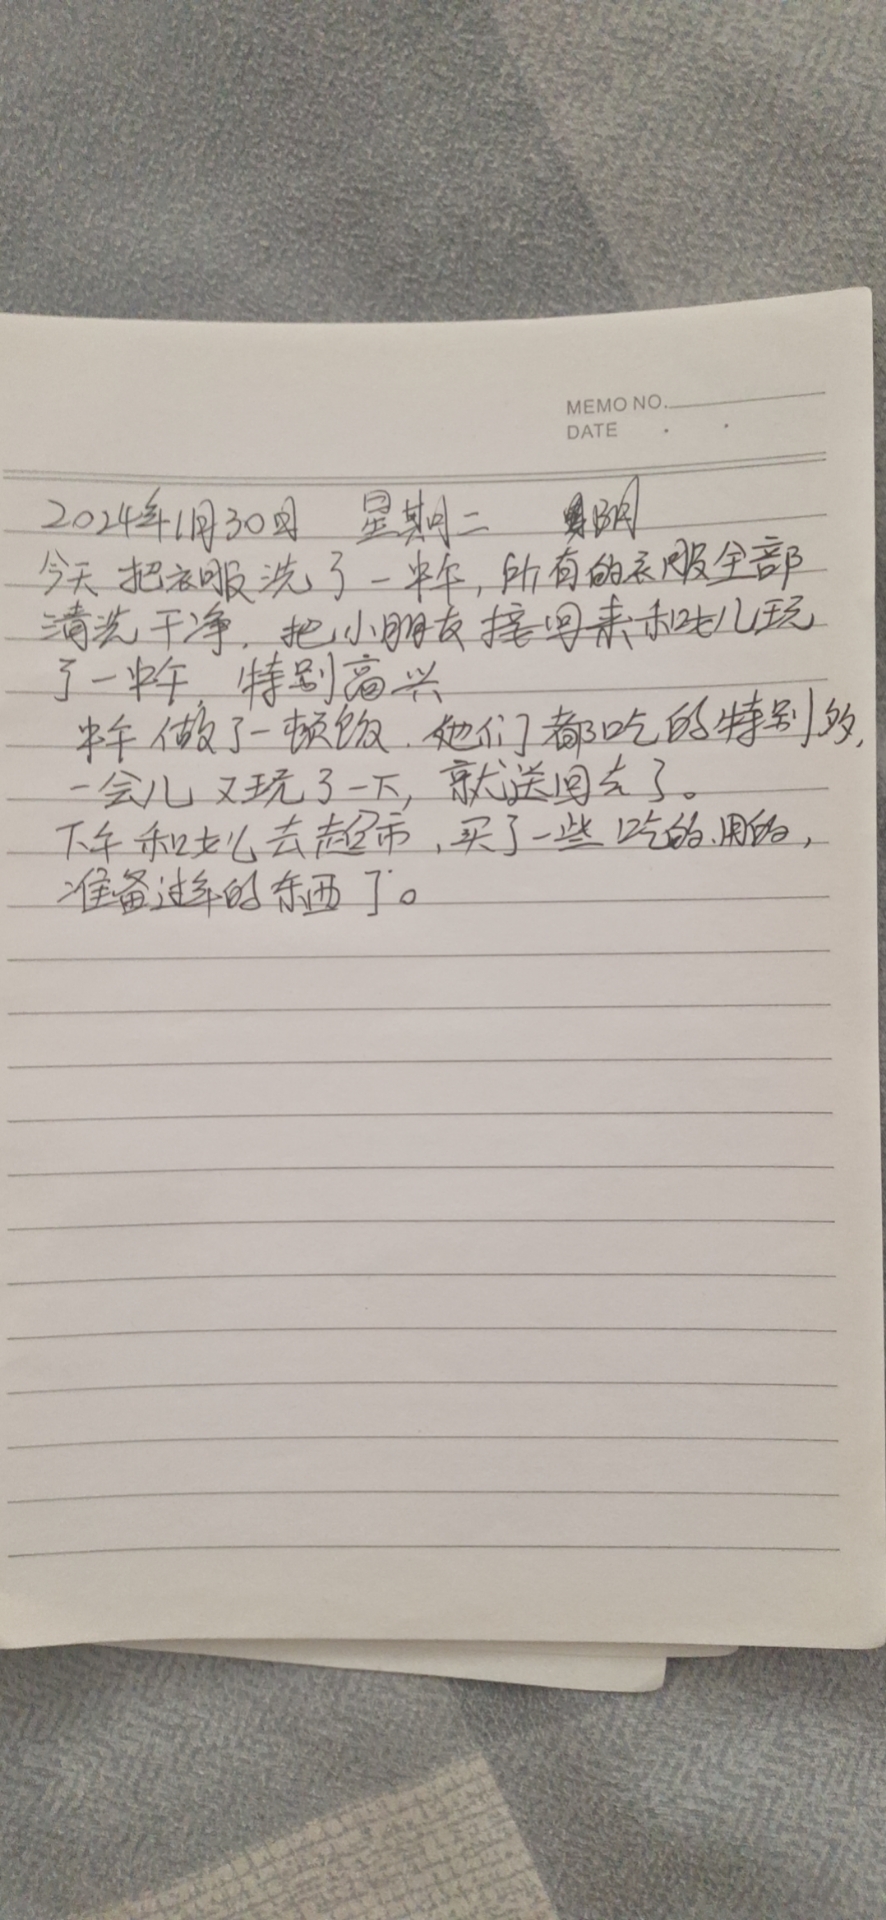 MEMO NO.
DATE . .
2024年1月30日 星期二 阴
今天把衣服洗了一中午,所有的衣服全部
清洗干净,把小朋友接回来和她儿玩
了一中午,特别高兴
中午做了一顿饭.她们都吃的特别多,
一会儿又玩了一下,就送回去了。
下午和女儿去超市,买了一些吃的、用的,
准备过年的东西了。